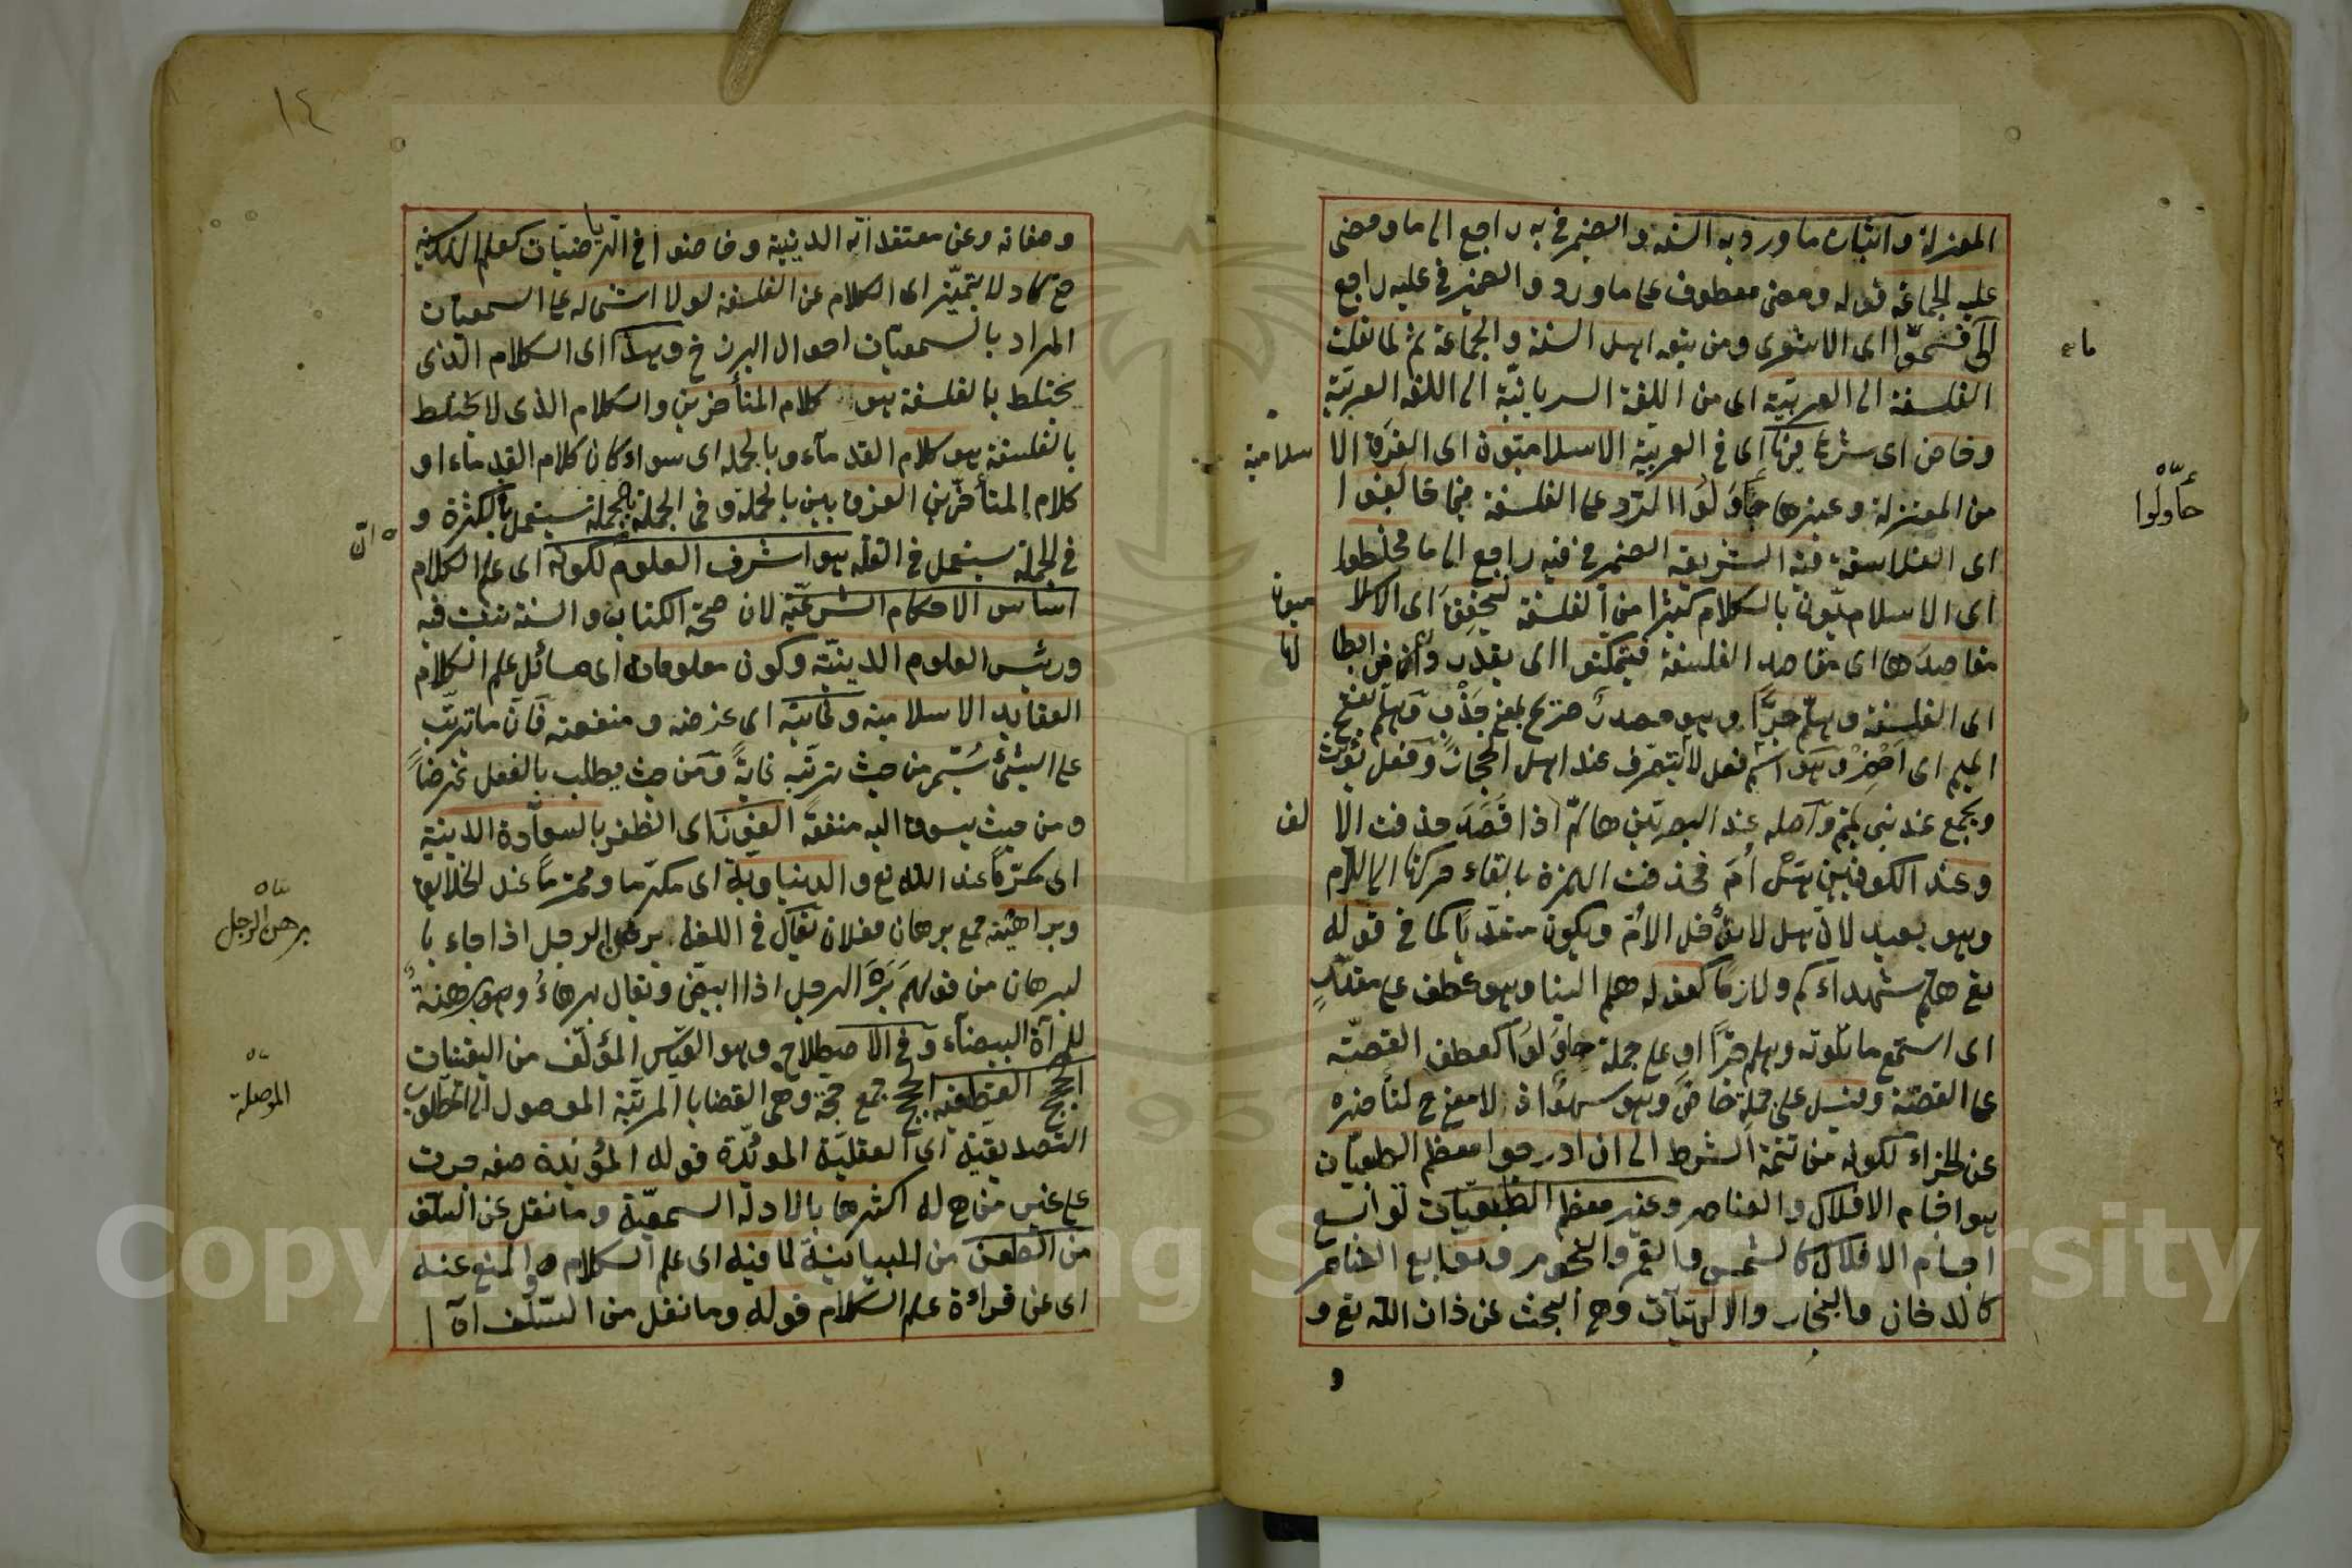 المعتزلة واثبات ما ورد به السنة والضمير في به راجع الى ما ومضى
عليه الجماعة قوله ومضى معطوف على ما ورد والضمير في عليه راجع
الى فسموا اى الاشعرى ومن تبعه اهل السنة والجماعة ثم لما نقلت
ما
الفلسفة الى العربية اى من اللغة السريانية الى اللغة العربية
وخاض اى شرع فيها اى في العربية الاسلاميون اى الفرقة الا
سلامية
من المعتزلة وغيرها حاولوا الرد على الفلسفة فيما خالفوا
حاولوا
اى الفلاسفة فيه الشريعة الضمير في فيه راجع الى ما فخلطوا
اى الاسلاميون بالكلام كثيرا من الفلسفة ليحققوا اى الاسلا
ميون
مقاصدها اى مقاصد الفلسفة فيتمكنوا اى يقدروا من ابطا
لها
اى الفلسفة وهلم جرا وهو مصدر جر يجر بمعنى جذب وهلم بفتح
الميم اى احضر وهو اسم فعل لا يتصرف عند اهل الحجاز وفعل يؤنث
ويجمع عند بنى تميم واصله عند البصريين هالم اذا قصد حذفت الا
لف
وعند الكوفيين هل ام فحذفت الهمزة بالقاء حركتها الى اللام
وهو بعيد لان هل لا يدخل الامر ويكون متعديا كما في قوله
تع هلم شهداءكم ولازما كقوله هلم الينا وهو عطف على مقدر
اى استمع ما تلوته وهلم جرا او على جملة حاولوا كعطف القصة
على القصة وقيل على جملة خاض وهو سهو اذ لا معنى ح لتأخره
عن الجزاء لكونه من تتمة الشرط الى ان ادرجوا معظم الطبعيات
هو اجسام الافلاك والعناصر وغير معظم الطبعيات توابع
اجسام الافلاك كالشمس والقمر والنجوم وتوابع العناصر
كالدخان والبخار والالهيات وهى البحث عن ذات الله تع و
و
١٤
وصفاته وعن معتقداته الدينية وخاضوا في الرياضيات كعلم الفلكية
حتى كاد لا يتميز اى الكلام عن الفلسفة لولا اشتماله على السمعيات
المراد بالسمعيات احوال البرزخ وهذا اى الكلام الذى
يختلط بالفلسفة هو كلام المتأخرين والكلام الذى لا يختلط
بالفلسفة هو كلام القدماء وبالجملة اى سواء كان كلام القدماء او
كلام المتأخرين الفرق بين بالجملة وفى الجملة بالجملة يستعمل بالكثرة و
ان
في الجملة يستعمل في القلة هو اشرف العلوم لكونه اى علم الكلام
اساس الاحكام الشرعية لان صحة الكتاب والسنة تثبت فيه
ورئيس العلوم الدينية وكون معلوماته اى مسائل علم الكلام
العقايد الاسلامية وغايته اى غرضه ومنفعته فان ما ترتب
على الشئ يسمى من حيث ترتبه غاية ومن حيث يطلب بالفعل غرضا
ومن حيث يسوق اليه منفعة الفوز اى الظفر بالسعادة الدينية
اى مكرما عند الله تع والدنياوية اى مكرما ومحترما عند الخلايق
وبراهينه جمع برهان فعلان يقال في اللغة برهن الرجل اذا جاء با
برهن الرجل
لبرهان من قولهم بره الرجل اذا ابيض ويقال برهاء وبرهرهة
للمرأة البيضاء وفى الاصطلاح وهو القياس المؤلف من اليقينيات
الحجج القطعية الحجج جمع حجة وهى القضايا المرتبة الموصول الى المطلوب
الموصلة
التصديقية اى العقلية المؤيدة قوله المؤيدة صفة جرت
على غير من هى له اكثرها بالادلة السمعية وما نقل عن السلف
من الطعن من المبيانية لما فيه اى علم الكلام والمنع عنه
اى عن قراءة علم الكلام قوله وما نقل من السلف اه